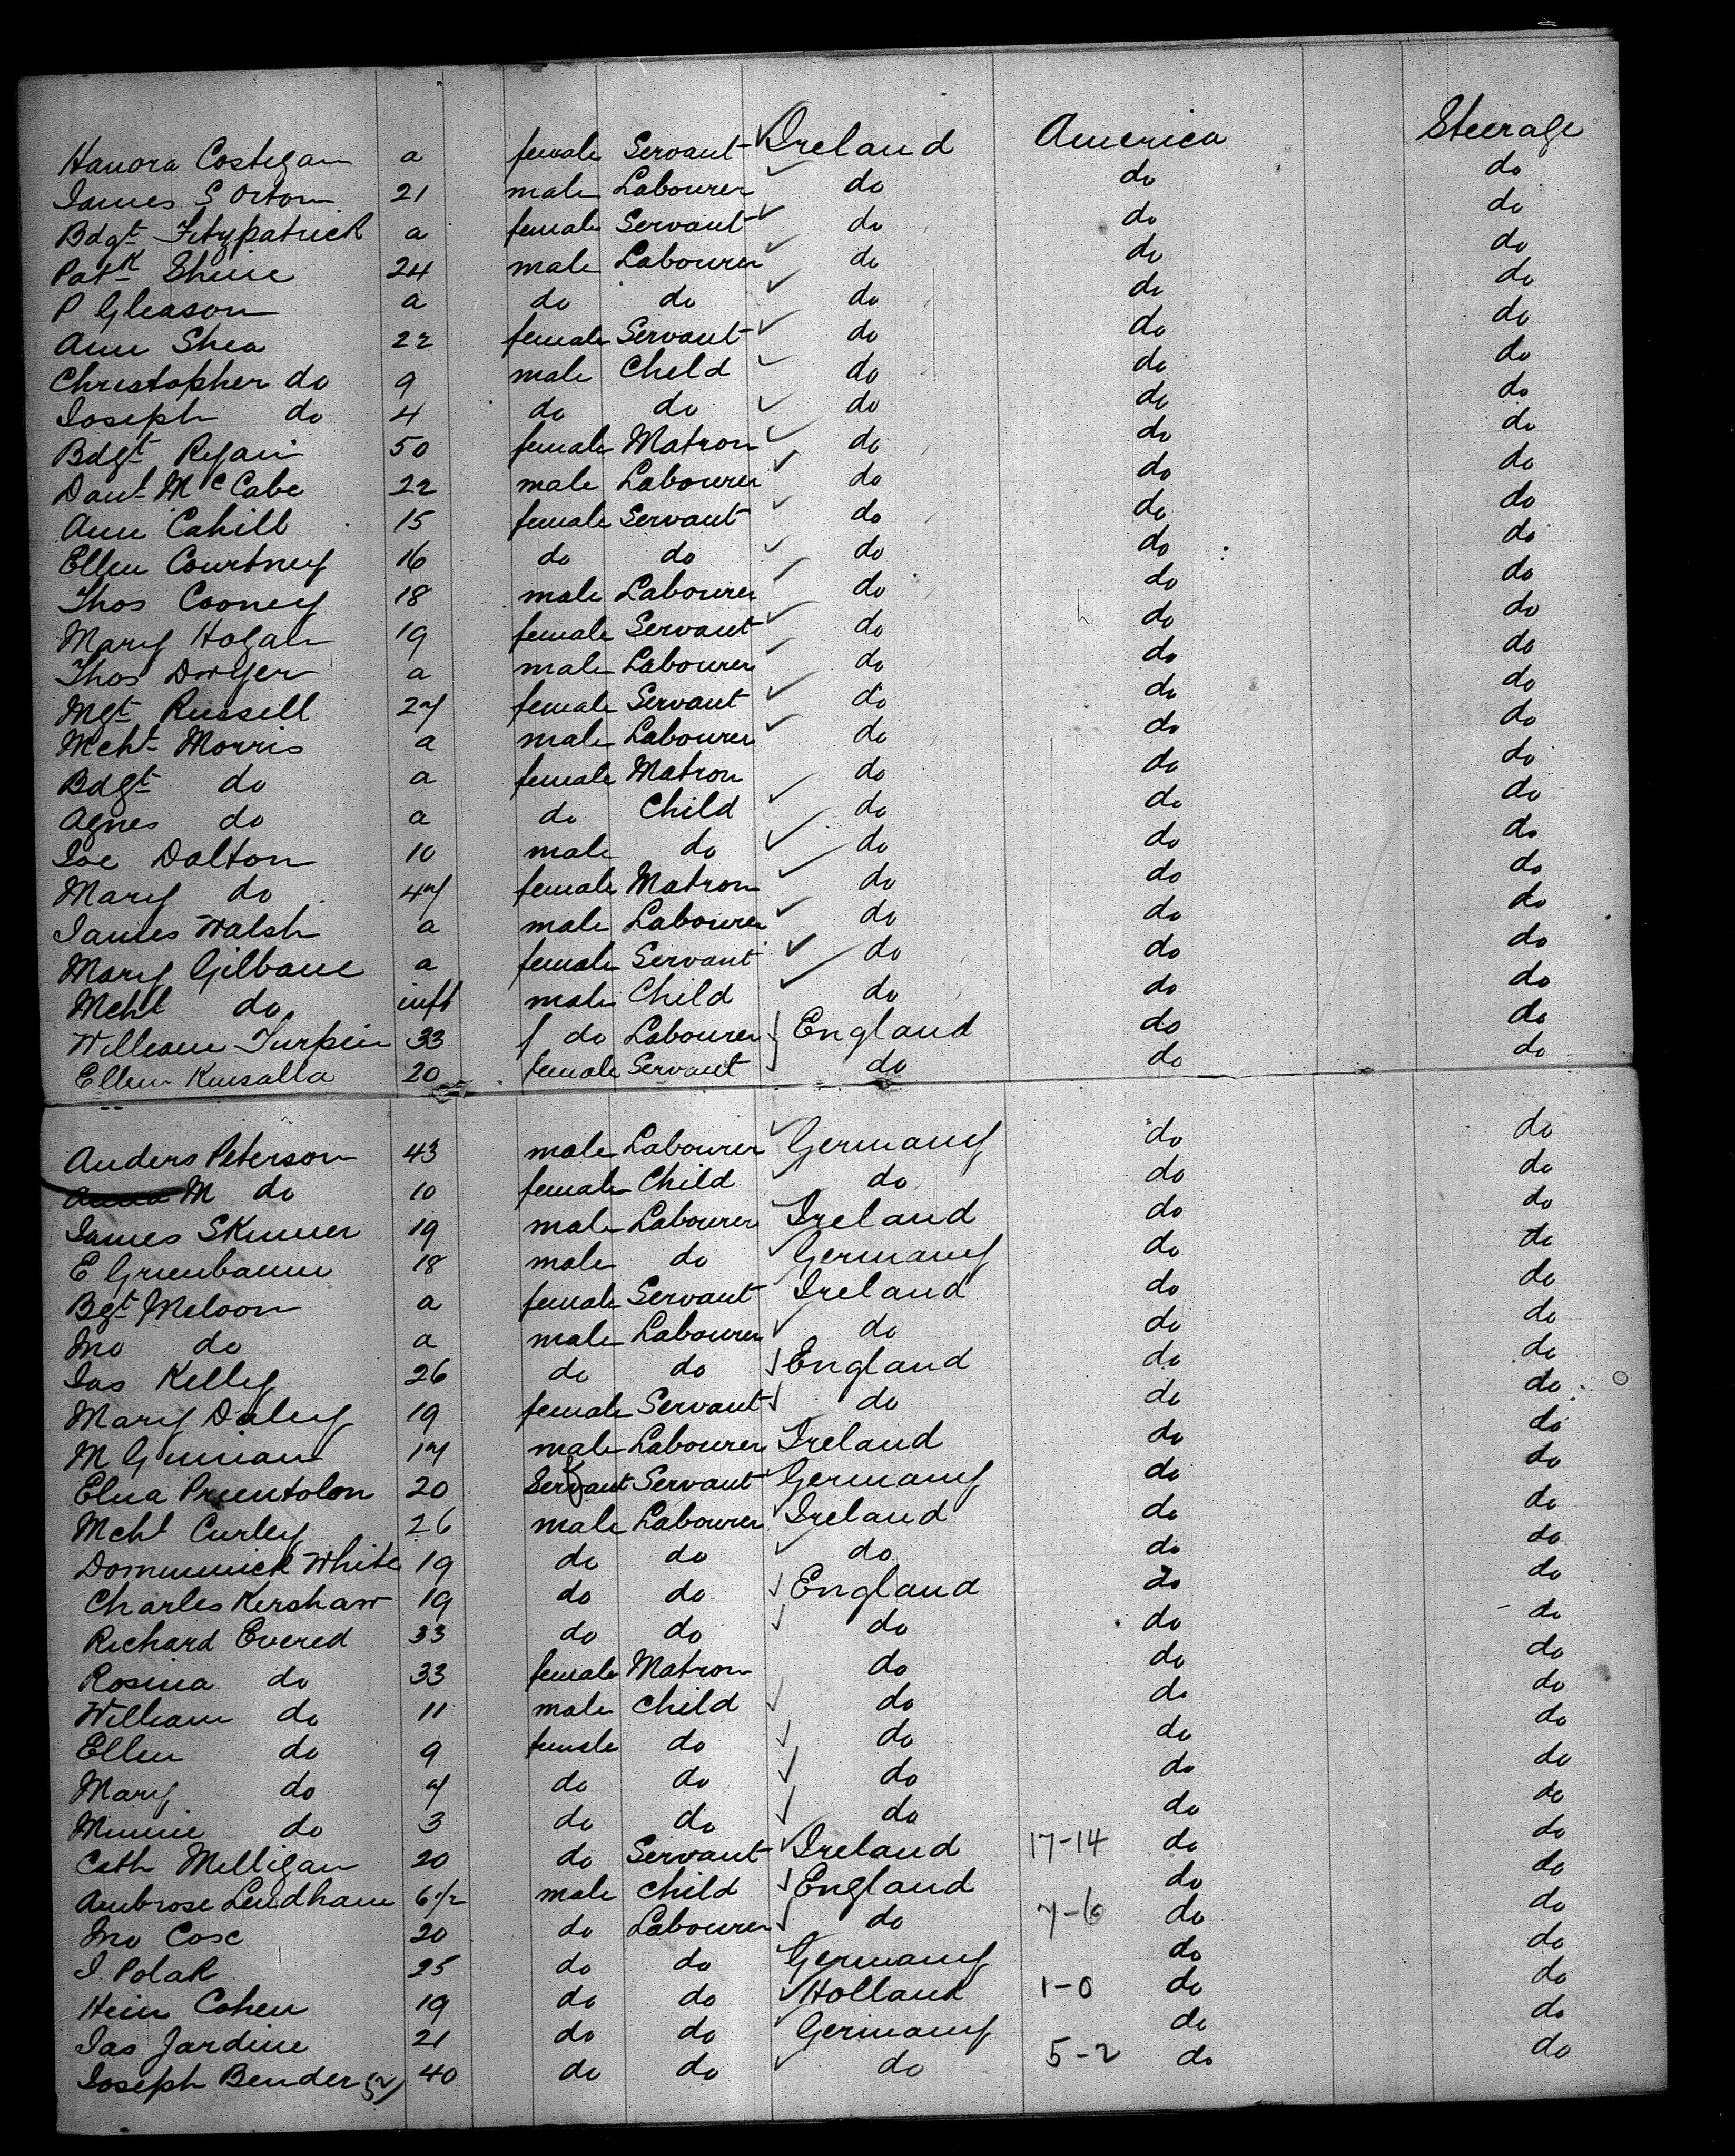 Hanora Costigan a female Servant Ireland America Steerage
James S Orton 21 male Labourer do do do
Bdgt Fitzpatrick a female Servant do do do
Patk Shine 24 male Labourer do do do
P Gleason a do do do do do
Ann Shea 22 female Servant do do do
Christopher do 9 male Child do do do
Joseph do 4 do do do do do
Bdgt Regain 50 female Matron do do do
Danl McCabe 22 male Labourer do do do
Ann Cahill 15 female Servant do do do
Ellen Courtney 16 do do do do do
Thos Cooney 18 male Labourer do do do
Mary Hogan 19 female Servant do do do
Thos Dwyer a male Labourer do do do
Mgt Russell 27 female Servant do do do
Mchl Morris a male Labourer do do do
Bdgt do a female Matron do do do
Agnes do a do Child do do do
Joe Dalton 10 male do do do do
Mary do 47 female Matron do do do
James Walsh a male Labourer do do do
Mary Gilbane a female Servant do do do
Mchl do inft male Child do do do
William Turpin 33 do Labourer England do do
Ellen Kinsalla 20 female Servant do do do
Anders Peterson 43 male Labourer Germany do do
Anna M do 10 female Child do do do
James Skinner 19 male Labourer Ireland do do
E Gruenbaum 18 male do Germany do do
Bgt Meloon a female Servant Ireland do do
Jno do a male Labourer do do do
Jas Kelly 26 do do England do do
Mary Daley 19 female Servant do do do
M 17 male Labourer Ireland do do
Elna 20 Servant Servant Germany do do
Mchl Curley 26 male Labourer Ireland do do
Domminick White 19 do do do do do
Charles Kershaw 19 do do England do do
Richard Evered 33 do do do do do
Rosina do 33 female Matron do do do
William do 11 male Child do do do
Ellen do 9 female do do do do
Mary do 7 do do do do do
Minnie do 3 do do do do do
Cath Milligan 20 do Servant Ireland 17-14 do do
Ambrose Lendham 6 1/2 male Child England do do
Jno Cose 20 do Labourer do 7-6 do do
I Polak 25 do do Germany do do
Hein Cohen 19 do do Holland 1-0 do do
Jas Jardine 21 do do Germany do do
Joseph Bender 52 40 do do do 5-2 do do